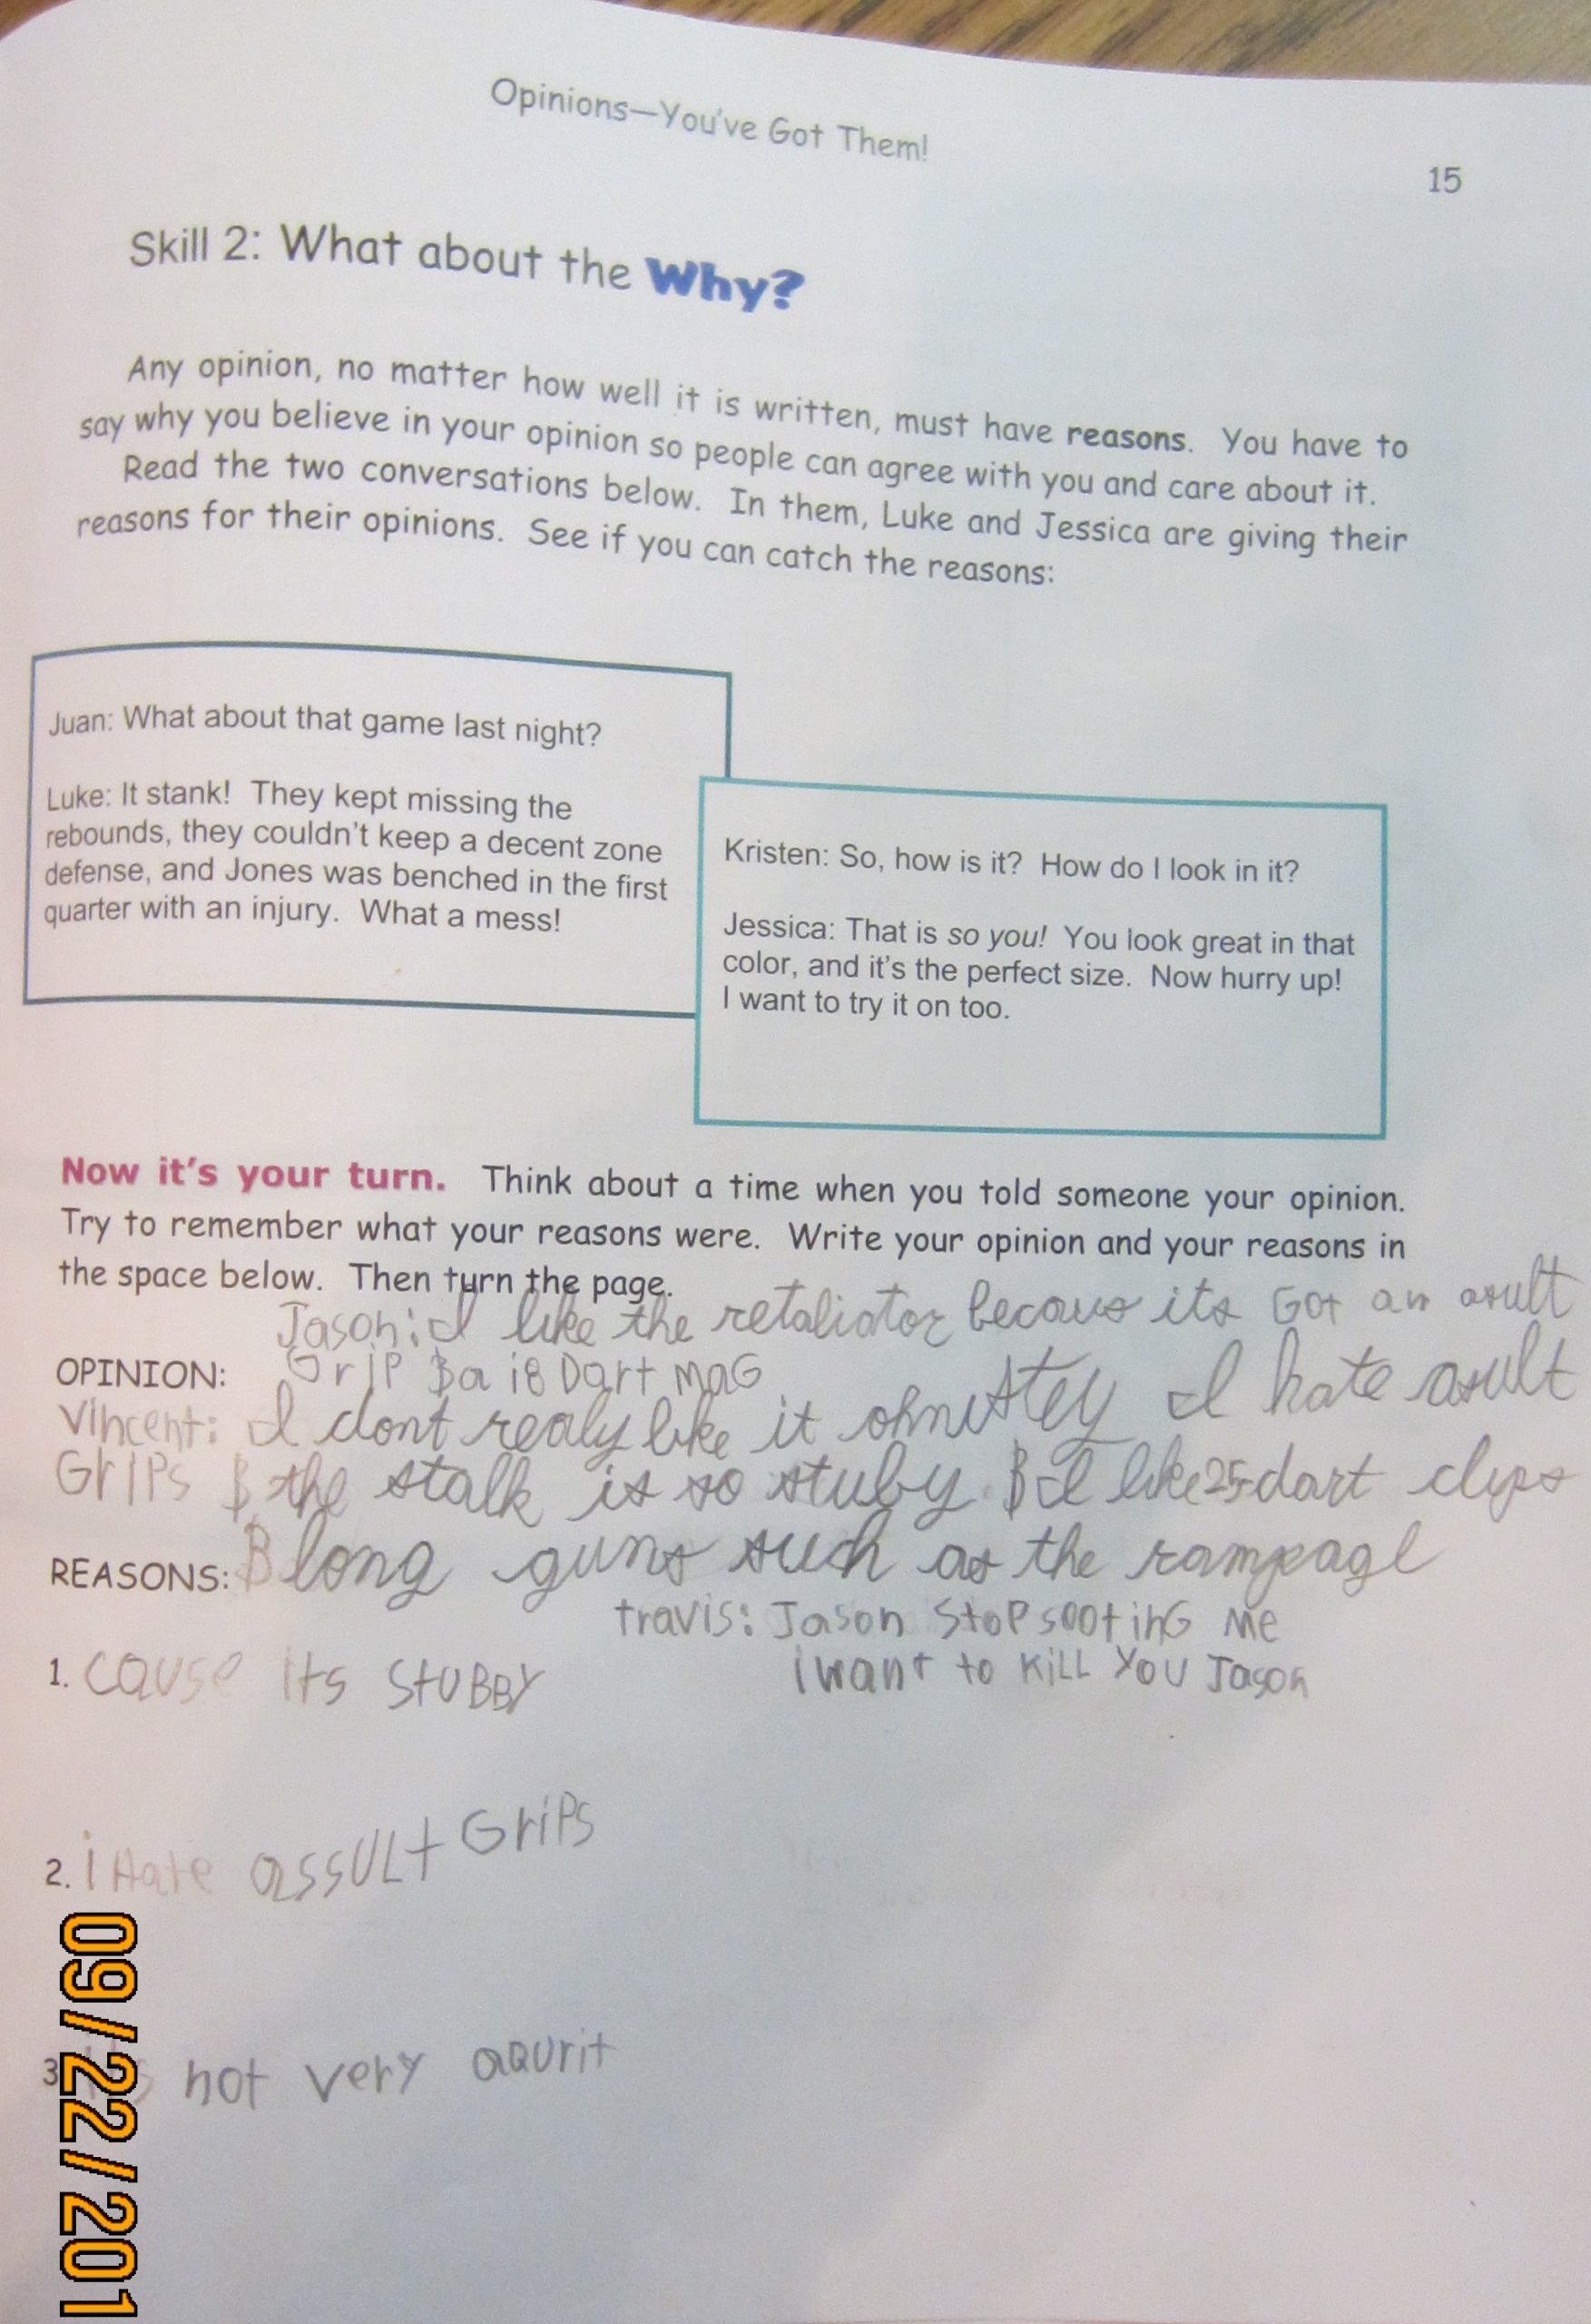 Opinions—You've Got Them!
15
Skill 2: What about the Why?
Any opinion, no matter how well it is written, must have reasons. You have to
say why you believe in your opinion so people can agree with you and care about it.
Read the two conversations below. In them, Luke and Jessica are giving their
reasons for their opinions. See if you can catch the reasons:
Juan: What about that game last night?
Luke: It stank! They kept missing the
rebounds, they couldn't keep a decent zone
defense, and Jones was benched in the first
quarter with an injury. What a mess!
Kristen: So, how is it? How do I look in it?
Jessica: That is so you! You look great in that
color, and it's the perfect size. Now hurry up!
I want to try it on too.
Now it's your turn. Think about a time when you told someone your opinion.
Try to remember what your reasons were. Write your opinion and your reasons in
the space below. Then turn the page.
Jason: I like the retaliator becaus its Got an asult
OPINION: Grip & a 18 Dart maG
Vincent: I dont realy like it ohnistey I hate asult
GriPs & the stalk is so stuby & I like 25-dart clips
REASONS: & long guns such as the rampage
travis: Jason StoP sootinG Me
1. cause its StUBBY
i want to KiLL YoU Jason
2. i Hate assULt GriPs
3. its not very aqurit
09/22/201